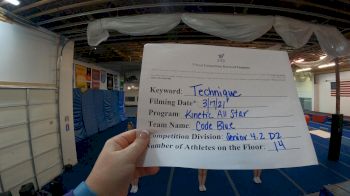 Keyword: Technique
Filming Date* 3/7/21
Program: Kinetic All Star
Team Name: Code Blue
Competition Division: Senior 4.2 D2
Number of Athletes on the Floor: 14